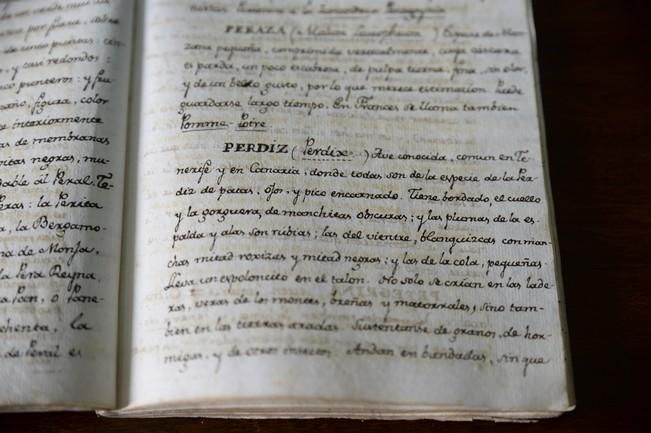 o punteros: y fru-
año, figura, color
e interiormente
as de membranas
itas negras, mu-
dable al Peral. Te-
eras: la Perita
a, la Bergamo-
na de Monja,
la Pera Reyna,
a Pan, o Pane-
chenta, la
de Peral es
PERAZA (
zana pequeña, comprimida verticalmente, cuya cascara
es parda, un poco escabrosa, de pulpa tierna, fina, sin olor,
y de un bello gusto, por lo que merece estimacion. Puede
guardarse largo tiempo. En Frances se llama tambien
Pomme-Poire.
PERDIZ (Perdix...) Ave conocida, comun en Te-
nerife y en Canaria, donde todas son de la especie de la Per-
diz de patas, ojos, y pico encarnado. Tiene bordado el cuello
y la gorguera, de manchitas obscuras; y las plumas de la es-
palda y alas son rubias; las del vientre, blanquizcas con man-
chas mitad roxizas y mitad negras; y las de la cola, pequeñas.
Lleva un espoloncito en el talon. No solo se crian en las lade-
ras, veras de los montes, breñas y matorrales, sino tam-
bien en las tierras aradas. Sustentanse de granos, de hor-
migas, y de otros insectos. Andan en bandadas, sin que